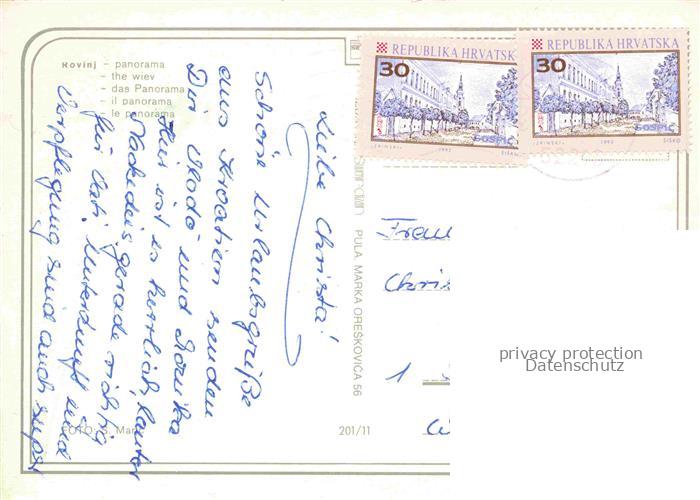 Rovinj – panorama
– the wiev
– das Panorama
– il panorama
– le panorama
REPUBLIKA HRVATSKA
30
GOSPIĆ
1992
REPUBLIKA HRVATSKA
30
GOSPIĆ
1992
SISKO
Liebe Christa!
Schöne Urlaubsgrüße
aus Kroatien senden
Dir und Monika
Hier ist es herrlich, lauter
gerade richtig
für Unterkunft und
Verpflegung sind auch super
PULA, MARKA OREŠKOVIĆA 56
Frau
Chris
1
201/11
privacy protection
Datenschutz